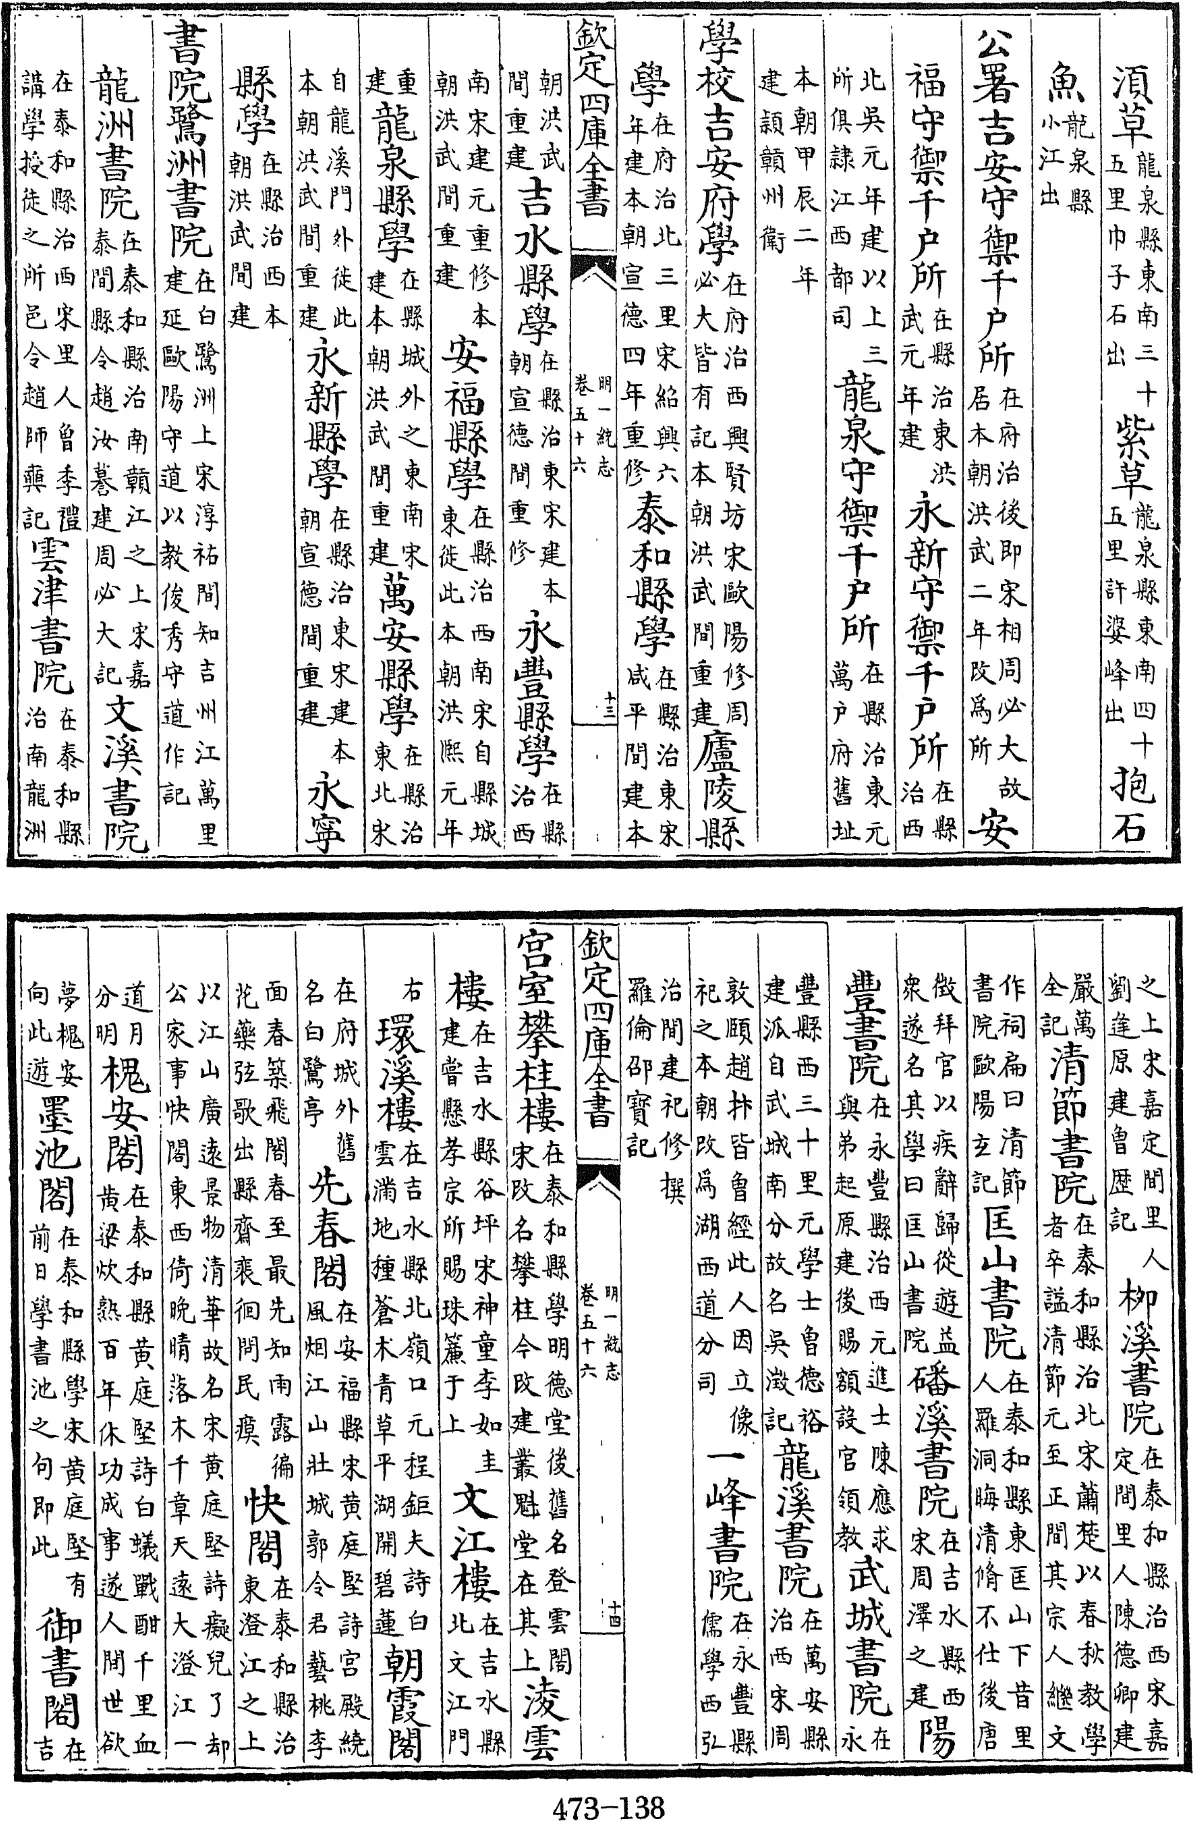 湏草龍泉縣東南三十五里巾子石出紫草龍泉縣東南四十五里許婆峰出抱石
魚龍泉縣小江出
公署吉安守禦千户所在府治後即宋相周必大故居本朝洪武二年改爲所安
福守禦千户所在縣治東洪武元年建永新守禦千户所在縣治西
北吳元年建以上三所俱隷江西都司龍泉守禦千户所在縣治東元萬户府舊址
本朝甲辰二年建頴贑州衛
學校吉安府學在府治西興賢坊宋歐陽修周必大皆有記本朝洪武間重建廬陵縣
學在府治北三里宋紹興六年建本朝宣德四年重修泰和縣學在縣治東宋咸平間建本
欽定四庫全書 明一統志 卷五十六 十三
朝洪武間重建吉水縣學在縣治東宋建本朝宣德間重修永豐縣學在縣治西
南宋建元重修本朝洪武間重建安福縣學在縣治西南宋自縣城東徙此本朝洪熙元年
重建龍泉縣學在縣城外之東南宋建本朝洪武間重建萬安縣學在縣治東北宋
自龍溪門外徙此本朝洪武間重建永新縣學在縣治東宋建本朝宣德間重建永寧
縣學在縣治西本朝洪武間建
書院鷺洲書院在白鷺洲上宋淳祐間知吉州江萬里建延歐陽守道以教俊秀守道作記
龍洲書院在泰和縣治南贛江之上宋嘉泰間縣令趙汝謩建周必大記文溪書院
在泰和縣治西宋里人曾季禮講學授徒之所邑令趙師奭記雲津書院在泰和縣治南龍洲
之上宋嘉定間里人劉逢原建曾歴記柳溪書院在泰和縣治西宋嘉定間里人陳德卿建
嚴萬全記清節書院在泰和縣治北宋蕭楚以春秋教學者卒謚清節元至正間其宗人繼文
作祠扁曰清節書院歐陽玄記匡山書院在泰和縣東匡山下昔里人羅洞晦清脩不仕後唐
徴拜官以疾辭歸從遊益衆遂名其學曰匡山書院磻溪書院在吉水縣西宋周澤之建陽
豐書院在永豐縣治西元進士陳應求與弟起原建後賜額設官領教武城書院在永
豐縣西三十里元學士曾德裕建派自武城南分故名吳澂記龍溪書院在萬安縣治西宋周
敦頤趙抃皆曾經此人因立像祀之本朝改爲湖西道分司一峰書院在永豐縣儒學西弘
治間建祀修撰羅倫邵寶記
欽定四庫全書 明一統志 卷五十六 十四
宫室攀桂樓在泰和縣學明德堂後舊名登雲閣宋改名攀桂今改建叢魁堂在其上淩雲
樓在吉水縣谷坪宋神童李如圭建嘗懸孝宗所賜珠簾于上文江樓在吉水縣北文江門
右環溪樓在吉水縣北嶺口元程鉅夫詩白雲滿地種蒼术青草平湖開碧蓮朝霞閣
在府城外舊名白鷺亭先春閣在安福縣宋黄庭堅詩宮殿繞風烟江山壯城郭令君藝桃李
面春築飛閣春至最先知雨露徧花藥弦歌出縣齋裵徊問民瘼快閣在泰和縣治東澄江之上
以江山廣遠景物清華故名宋黄庭堅詩癡兒了却公家事快閣東西倚晚晴落木千章天遠大澄江一
道月分明槐安閣在泰和縣黄庭堅詩白蟻戰酣千里血黄梁炊熟百年休功成事遂人間世欲
夢槐安向此遊墨池閣在泰和縣學宋黄庭堅有前日學書池之句即此御書閣在吉
473-138